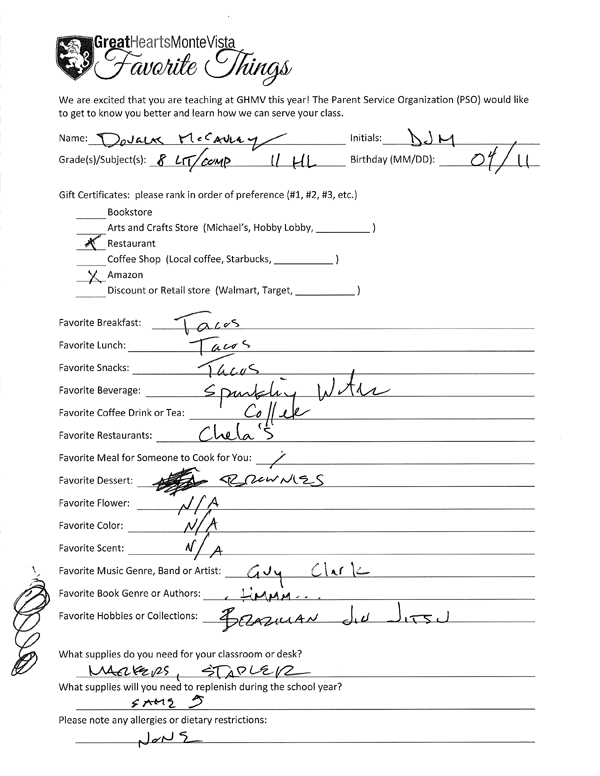 GreatHeartsMonteVista
Favorite Things
We are excited that you are teaching at GHMV this year! The Parent Service Organization (PSO) would like
to get to know you better and learn how we can serve your class.
Name: McCauley Initials: DJM
Grade(s)/Subject(s): 8 LIT/COMP 11 HL Birthday (MM/DD): 04/11
Gift Certificates: please rank in order of preference (#1, #2, #3, etc.)
Bookstore
Arts and Crafts Store (Michael's, Hobby Lobby, __________ )
Restaurant
Coffee Shop (Local coffee, Starbucks, __________ )
X Amazon
Discount or Retail store (Walmart, Target, __________ )
Favorite Breakfast: Tacos
Favorite Lunch: Tacos
Favorite Snacks: Tacos
Favorite Beverage: Sparkling Water
Favorite Coffee Drink or Tea: Coffee
Favorite Restaurants: Chela's
Favorite Meal for Someone to Cook for You: /
Favorite Dessert: BROWNIES
Favorite Flower: N/A
Favorite Color: N/A
Favorite Scent: N/A
Favorite Music Genre, Band or Artist: Guy Clark
Favorite Book Genre or Authors: HMMM...
Favorite Hobbies or Collections: BRAZILIAN JIU JITSU
What supplies do you need for your classroom or desk?
MARKERS, STAPLER
What supplies will you need to replenish during the school year?
SAME
Please note any allergies or dietary restrictions:
NONE